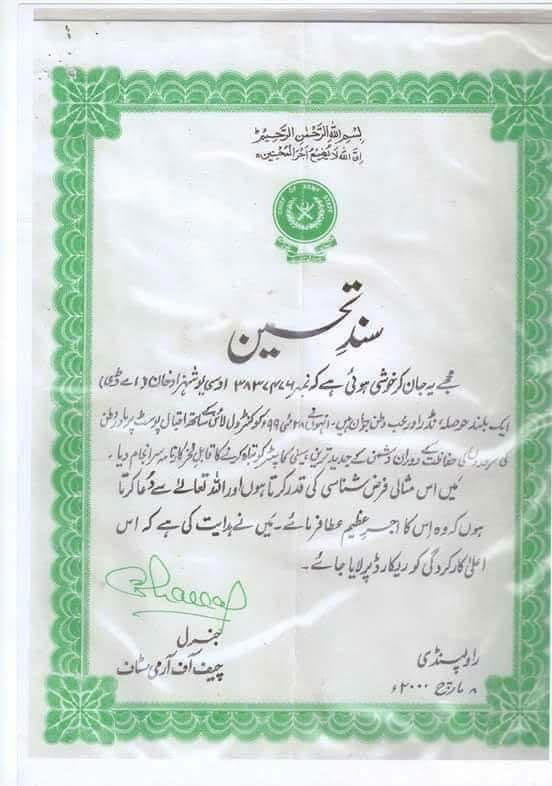 بِسْمِ اللهِ الرَّحْمٰنِ الرَّحِيْمِ
اِنَّ اللهَ لَا يُضِيْعُ اَجْرَ الْمُحْسِنِيْنَ
CHIEF OF ARMY STAFF
سندِ تحسین
مجھے یہ جان کر خوشی ہوئی ہے کہ نمبر ۳۸۳۷۴۷۶ اوسی یو شہزاد خان (اے ڈی)
ایک بلند حوصلہ نڈر اور محب وطن جوان ہیں۔ انہوں نے ۲۸ مئی ۹۹ء کو کنٹرول لائن کے ساتھ اقبال پوسٹ پر مادر وطن
کی سرحدوں کی حفاظت کے دوران دشمن کے جدید ترین ہیلی کاپٹر کو تباہ کرنے کا قابل فخر کارنامہ سرانجام دیا۔
مَیں اس مثالی فرض شناسی کی قدر کرتا ہوں اور اللہ تعالےٰ سے دُعا کرتا
ہوں کہ وہ اِس کا اجرِ عظیم عطا فرمائے۔ مَیں نے ہدایت کی ہے کہ اس
اعلیٰ کارکردگی کو ریکارڈ پر لایا جائے۔
جنرل
چیف آف آرمی سٹاف
راولپنڈی
۸ مارچ ۲۰۰۰ء